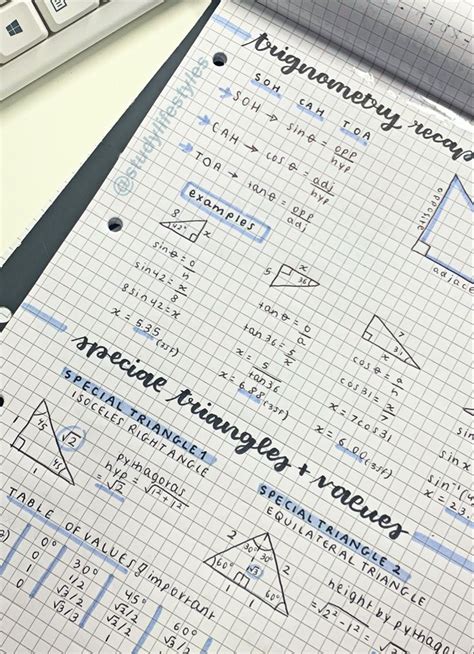 @studylifestyles
trignometry recap
SOH CAH TOA
SOH → sinθ = opp/hyp
CAH → cosθ = adj/hyp
TOA → tanθ = opp/adj
opposite
adjace
examples
8
42°
x
sinθ = o/h
sin42 = x/8
8sin42 = x
x = 5.35 (3SF)
x
5
36°
tanθ = o/a
tan36 = 5/x
x = 5/tan36
x = 6.88 (3SF)
7
x
31
cosθ = a/h
cos31 = x/7
x = 7cos31
x = 6.00 (3SF)
x = 23.
special triangles + values
SPECIAL TRIANGLE 1
ISOCELES RIGHTANGLE
45
√2
1
45
1
pythagoras
hyp = √1²+1²
= √2
SPECIAL TRIANGLE 2
EQUILATERAL TRIANGLE
2
30° 30°
2
√3
60° 60°
1 1
height by pythag
= √2²-1² = √
TABLE OF VALUES & important
0° 30° 45° 60°
0 1/2 √2/2 √3/2
1 √3/2 √2/2
0 √3/3